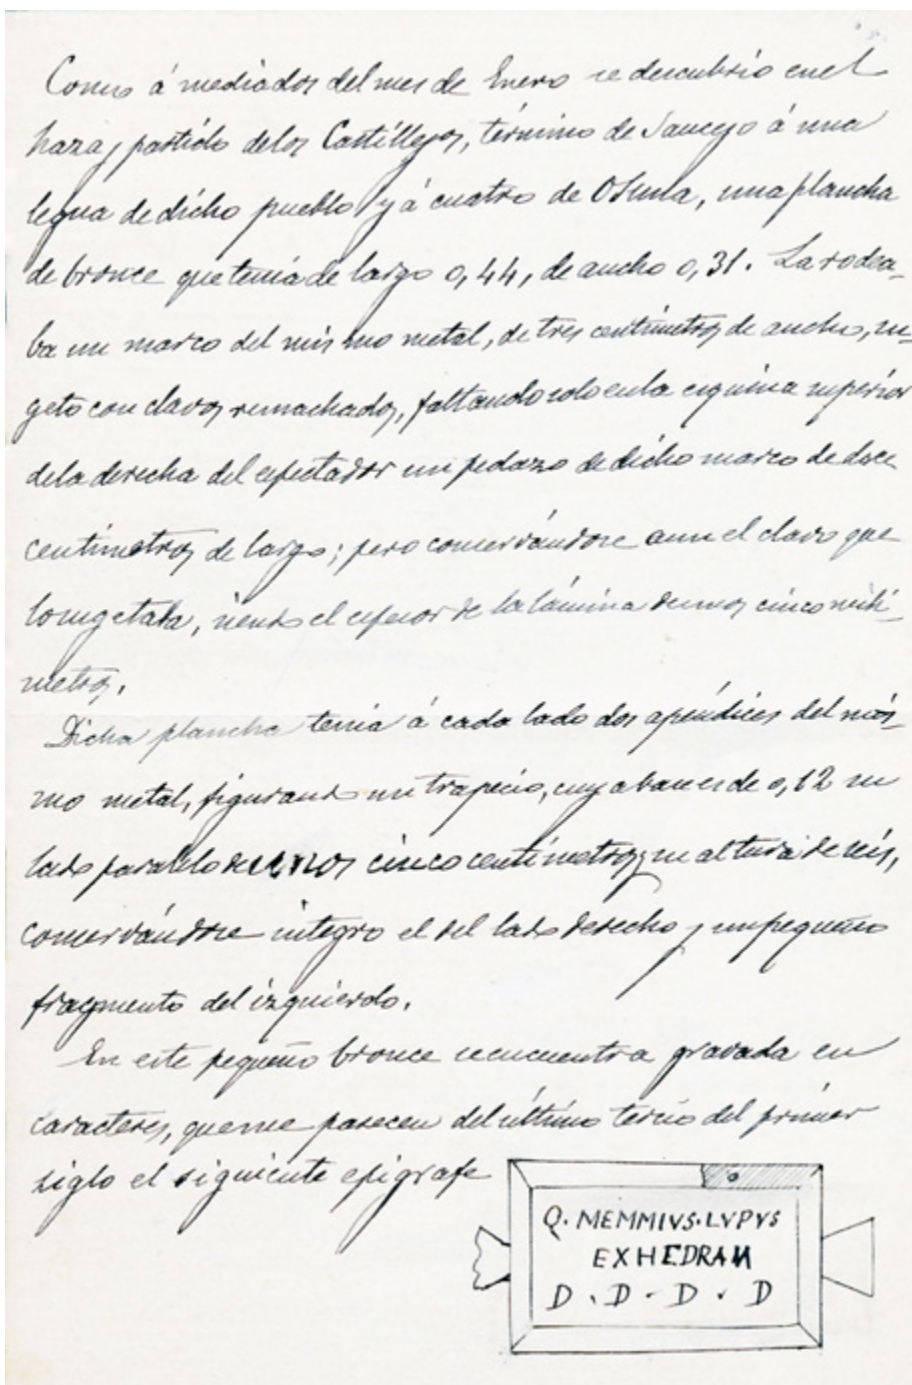 Como á mediados del mes de Enero se descubrió en el
haza y partido de los Castillejos, término de Saucejo á una
legua de dicho pueblo y á cuatro de Osuna, una plancha
de bronce que tenia de largo 0,44, de ancho 0,31. La rodea-
ba un marco del mismo metal, de tres centimetros de ancho, su-
geto con clavos remachados, faltando solo en la esquina superior
de la derecha del espectador un pedazo de dicho marco de doce
centimetros de largo; pero conservándose aun el clavo que
lo sugetaba, siendo el espesor de la lámina de unos cinco milí-
metros.
Dicha plancha tenia á cada lado dos apéndices del mis-
mo metal, figurando un trapecio, cuya base es de 0,12 su
lado paralelo de unos cinco centímetros y su altura de seis,
conservándose integro el del lado derecho y un pequeño
fragmento del izquierdo.
En este pequeño bronce se encuentra gravada en
caracteres, que me parecen del último tercio del primer
siglo el siguiente epigrafe
Q. MEMMIVS. LVPVS
EXHEDRAM
D . D . D . D